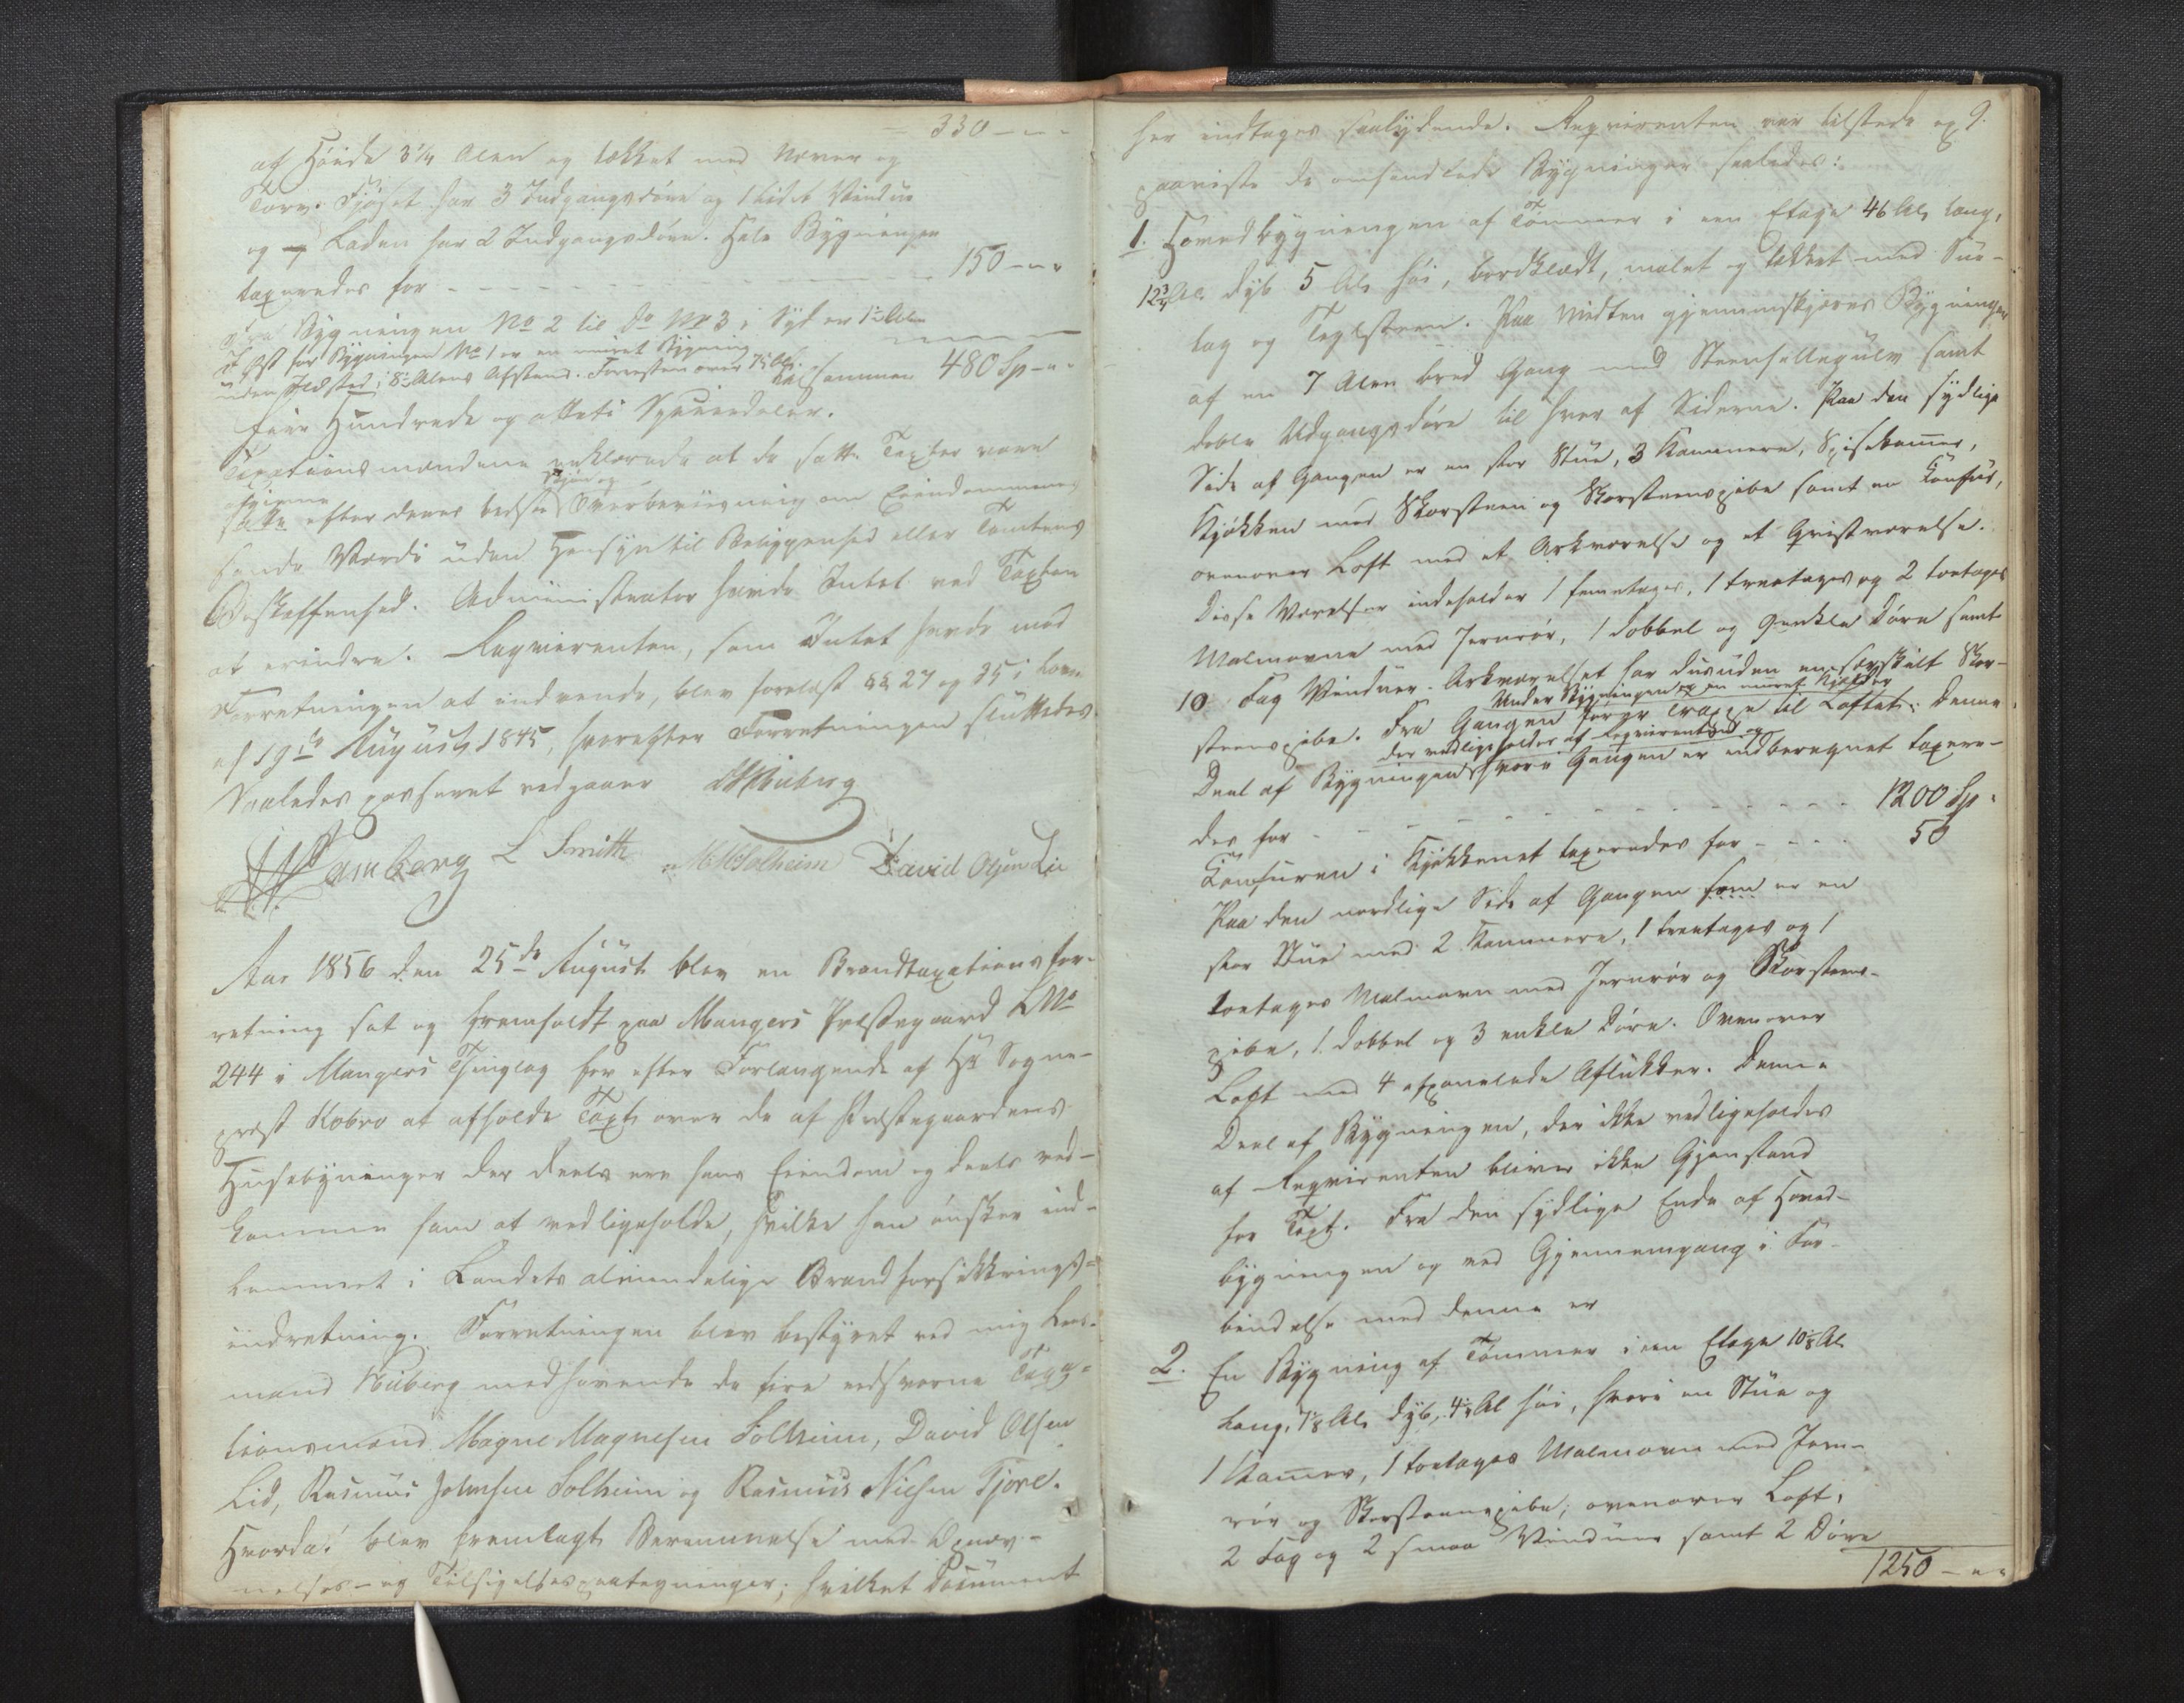 330 – " –
af Høide 3 1/4 Alen og tækket med Næver og
Torv. Fjøset har 3 Indgangsdøre og 1 lidet Vindue
og Laden har 2 Indgangsdøre. Hele Bygningen
taxeredes for - - - - - - - - 150 – " "
Fra Bygningen No 2 til do No 3 i Syd er 1 1/2 Alen
I Øst for Bygningen No 1 er en muret Bygning
uden Ildsted i 8 1/2 Alens Afstand. Forresten over 75 Al.
tilsammen 480 Sp – " "
Fire Hundrede og otteti Speciedaler.
Taxationsmændene erklærede at de satte Taxter vare
afgivne Skjøn og
satte efter deres bedste Overbeviisning om Eiendommenes
sande Værdi uden Hensyn til Beliggenhed eller Tomtens
Beskaffenhed. Administrator havde Intet ved Taxten
at erindre. Requirenten, som Intet havde mod
Forretningen at indvende, blev forelæst §§ 27 og 35 i Loven
af 19de August 1845, hvorefter Forretningen sluttedes.
Saaledes passeret vedgaaer
L Smith MMSolheim David Olsen Lie
Aar 1856 den 25de August blev en Brandtaxationsfor-
retning sat og fremholdt paa Mangers Præstegaard LNo
244 i Mangers Thinglag for efter Forlangende af Hr Sogne-
præst Kobro at afholde Taxt over de af Præstegaardens
Huusebygninger der deels ere hans Eiendom og deels ved-
kommer ham at vedligeholde, hvilke han ønsker ind-
lemmet i Landets almindelige Brandforsikkrings-
indretning. Forretningen blev bestyret ved mig Lens-
mand Wiberg medhavende de fire edsvorne Taxa-
tionsmænd Magne Magnesen Solheim, David Olsen
Lid, Rasmus Johnsen Solheim og Rasmus Nielsen Fjore.
Hvorda! blev fremlagt Berammelse med Opnæv-
nelses- og Tilsigelsespaategninger; hvilket Document
9.
her indtages saalydende. Requirenten var tilstede og
paaviste de omhandlede Bygninger saaledes:
1. Hovedbygningen af Tømmer i een Etage 46 Al. lang,
12 3/4 Al. dyb 5 Al. høi, bordklædt, malet og tækket med Sue-
tag og Teglsteen. Paa Midten gjennemskjæres Bygningen
af en 7 Alen bred Gang med Steenhellegulv samt
doble Udgangsdøre til hver af Siderne. Paa den sydlige
Side af Gangen er en stor Stue, 3 Kammere, Spisekammer,
Kjøkken med Skorsteen og Skorsteenspibe samt en Komfur,
ovenover Loft med et Arkværelse og et Qvistværelse.
Disse Værelser indeholder 1 femetages, 1 treetages og 2 toetages
Malmovne med Jernrør, 1 dobbel og enkle Døre samt
10 Fag Vinduer. Arkværelset har desuden en særskilt Skor-
Under Bygningen er en muret Kjælder
steenspibe. Fra Gangen fører Trappe til Loftet. Denne
der vedligeholdes af Requirenten og
Deel af Bygningen hvori Gangen er indberegnet taxere-
des for - - - - - - - - - 1200 Sp.
Komfuren i Kjøkkenet taxeredes for - - - - 50
Paa den nordlige Side af Gangen som er en
stor Stue med 2 Kammere, 1 treetages og 1
toetages Malmovn med Jernrør og Skorsteens-
pibe, 1 dobbel og 3 enkle Døre. Ovenover
Loft med 4 afpanelede Aflukker. Denne
Deel af Bygningen, der ikke vedligeholdes
af Requirenten bliver ikke Gjenstand
for Taxt. Fra den sydlige Ende af Hoved-
bygningen og ved Gjennemgang i For-
bindelse med denne er
2. En Bygning af Tømmer i een Etage 10 1/2 Al
lang, 7 1/2 Al. dyb, 4 1/4 Al høi, hvori en Stue og
1 Kammer, 1 toetages Malmovn med Jern-
rør og Skorsteenspibe; ovenover Loft,
2 Fag og 2 smaa Vinduer samt 2 Døre
1250 – " "